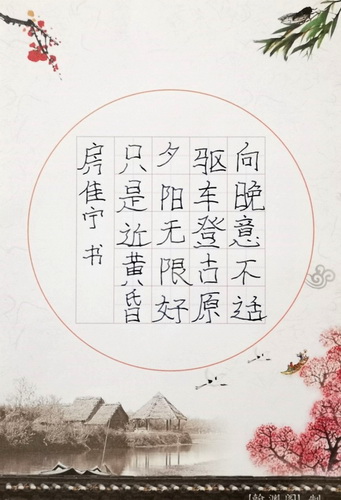 向晚意不适
驱车登古原
夕阳无限好
只是近黄昏
房佳宁书
[翰渊阁]制